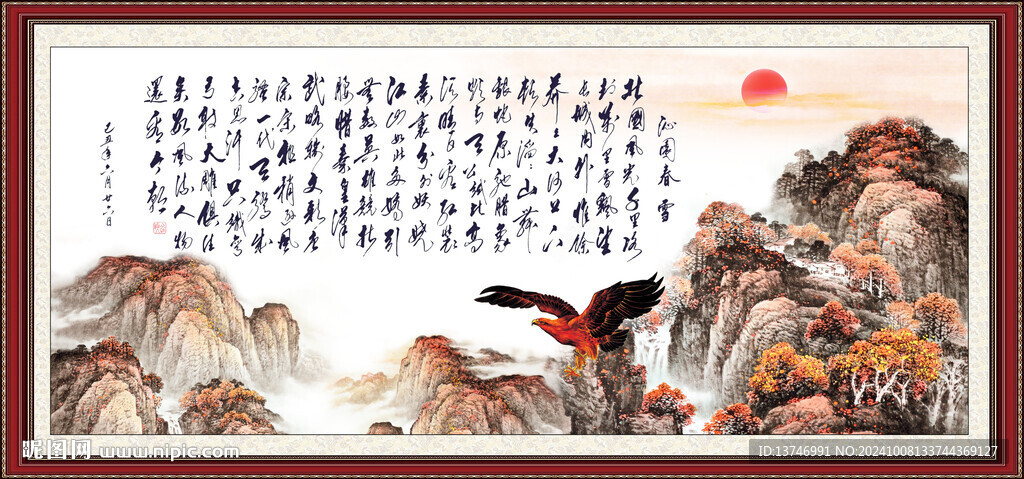 沁園春 雪
北國風光千里冰
封萬里雪飘望
长城内外惟餘
莽々大河上下
頓失滔々山舞
銀蛇原馳腊象
欲与天公試比高
须晴日看红装
素裹分外妖娆
江山如此多娇引
無數英雄競折
腰惜秦皇漢
武略輸文彩唐
宗宋祖稍逊風
骚一代天骄成
吉思汗只識弯
弓射大雕俱往
矣数風流人物
還看今朝
己丑年六月廿六日
昵图网 www.nipic.com
ID:13746991 NO:20241008133744369127